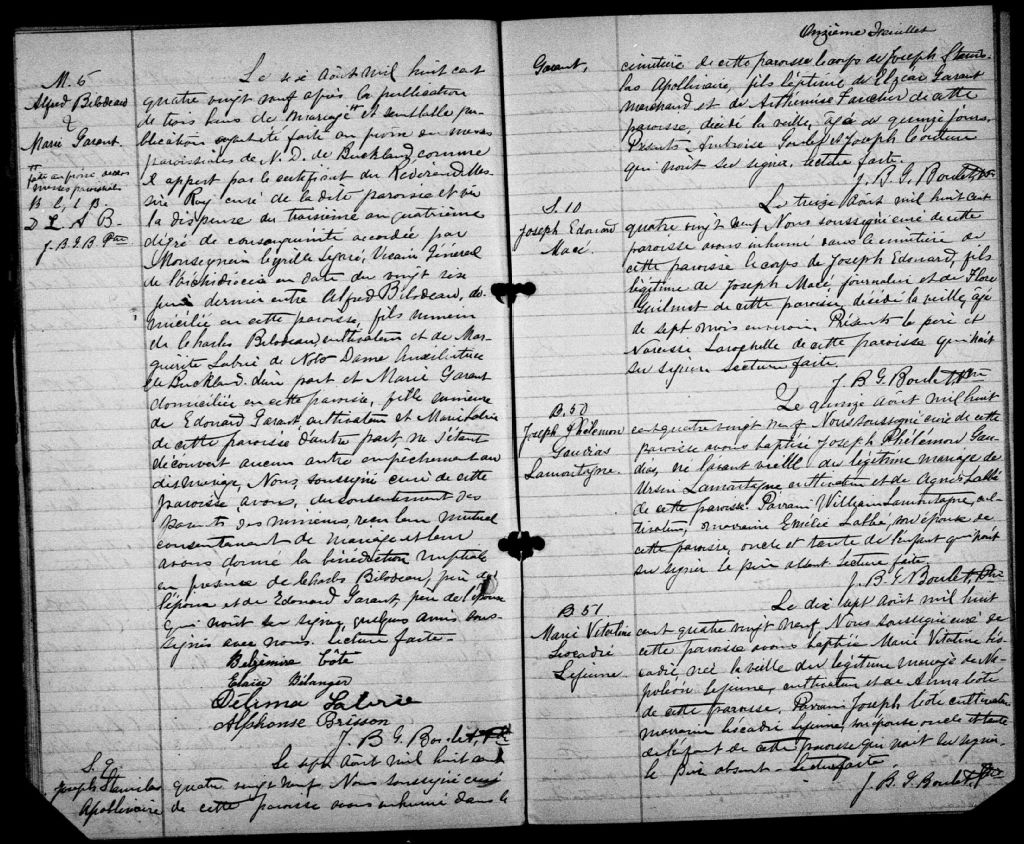 M. 5
Alfred Bilodeau
&
Marie Garant.
faite au prône
messes paroissiales
B L L B
D L A B
J. B. G. B. Ptre
Le six Août mil huit cent
quatre vingt neuf après la publication
de trois bans de mariage et semblable pu-
blication faite au prône des messes
paroissiales de N. D. de Buckland, comme
il appert par le certificat du Révérend Mes-
sire Roy curé de la dite paroisse et vu
la dispense du troisième au quatrième
dégré de consanguinité accordée par
Monseigneur Cyrille Vicaire Général
de l'archidiocèse en date du vingt six
dernier entre Alfred Bilodeau, do-
micilié en cette paroisse, fils mineur
de Charles Bilodeau cultivateur et de Mar-
guerite Labrie de Notre Dame Auxiliatrice
de Buckland d'une part et Marie Garant
domiciliée en cette paroisse, fille mineure
de Edouard Garant cultivateur et Marie Labrie
de cette paroisse d'autre part ne s'étant
découvert aucun autre empêchement au
dit mariage, Nous, soussigné curé de cette
paroisse, avons, du consentement des
parents des mineurs, reçu leur mutuel
consentement de mariage et leur
avons donné la bénédiction nuptiale
en présence de Charles Bilodeau, père de
l'époux et de Edouard Garant, père de l'épouse
qui n'ont su signer, quelques amis sous-
signés avec nous. Lecture faite.
Belzémire Côté
Elaise Bélanger
Délima Labrie
Alphonse Brisson
J. B. G. Boulet, Ptre
S. 9.
Joseph Stanislas
Apollinaire
Le sept Août mil huit cent
quatre vingt neuf. Nous soussigné curé
de cette paroisse avons inhumé dans le
Onzième Feuillet
Garant,
cimetière de cette paroisse le corps de Joseph Stanis-
las Apollinaire, fils légitime de Elzéar Garant
marchand et de Arthémise Fancher de cette
paroisse, décédé la veille, agé de quinze jours.
Présents Ambroise et Joseph Couture
qui n'ont su signer. Lecture faite.
J. B. G. Boulet Ptre
S. 10
Joseph Edouard
Macé.
Le treize Août mil huit cent
quatre vingt neuf. Nous soussigné curé de cette
paroisse avons inhumé dans le cimetière de
cette paroisse le corps de Joseph Edouard, fils
légitime de Joseph Macé, journalier et de Flore
Guilmet de cette paroisse, décédé la veille, agé
de sept mois environ. Présents le père et
Narcisse Larochelle de cette paroisse qui n'ont
su signer. Lecture faite.
J. B. G. Boulet Ptre
B. 50
Joseph Philémon
Gaudias
Lamontagne.
Le quinze Août mil huit
cent quatre vingt neuf Nous soussigné curé de cette
paroisse avons baptisé Joseph Philémon Gau-
dias, né l'avant veille du légitime mariage de
Ursin Lamontagne cultivateur et de Agnès Labbé
de cette paroisse. Parrain William Lamontagne, cul-
tivateur, marraine Emélie Labbé, son épouse de
cette paroisse, oncle et tante de l'enfant qui n'ont
su signer le père absent. Lecture faite.
J. B. G. Boulet, Ptre
B 51
Marie Vitaline
Léocadie
Lejeune
Le dix sept Août mil huit
cent quatre vingt neuf. Nous soussigné curé de
cette paroisse avons baptisé Marie Vitaline Léo-
cadie, née la veille du légitime mariage de Na-
poléon Lejeune, cultivateur et de Anna Côté
de cette paroisse. Parrain Joseph Côté cultivateur
marraine Léocadie Lejeune, son épouse oncle et tante
de l'enfant de cette paroisse qui n'ont su signer
le père absent. Lecture faite.
J. B. G. Boulet, Ptre